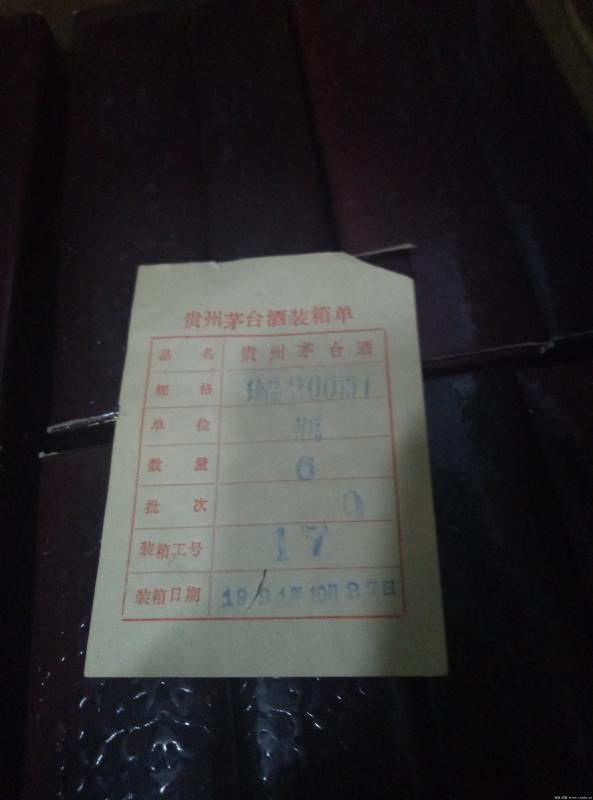 贵州茅台酒装箱单
品名 贵州茅台酒
规格 珍品200ml
单位 瓶
数量 6
批次 9
装箱工号 17
装箱日期 1991年10月27日